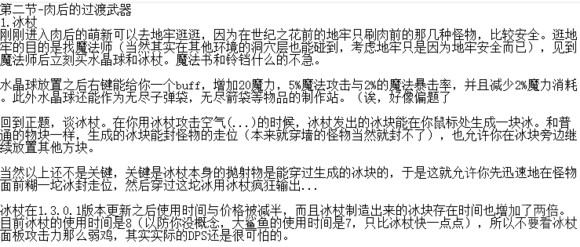 第二节-肉后的过渡武器
1.冰杖
刚刚进入肉后的萌新可以去地牢逛逛，因为在世纪之花前的地牢只刷肉前的那几种怪物，比较安全。逛地
牢的目的是找魔法师（当然其实在其他环境的洞穴层也能碰到，考虑地牢只是因为地牢安全而已），见到
魔法师后立刻买水晶球和冰杖。魔法书和铃铛什么的不急。
水晶球放置之后右键能给你一个buff，增加20魔力，5%魔法攻击与2%的魔法暴击率，并且减少2%魔力消耗
。此外水晶球还能作为无尽子弹袋，无尽箭袋等物品的制作站。（诶，好像偏题了
回到正题，谈冰杖。在你用冰杖攻击空气(...)的时候，冰杖发出的冰块能在你鼠标处生成一块冰。和普
通的物块一样，生成的冰块能封怪物的走位（本来就穿墙的怪物当然就封不了），也允许你在冰块旁边继
续放置其他方块。
当然以上还不是关键，关键是冰杖本身的抛射物是能穿过生成的冰块的，于是这就允许你先迅速地在怪物
面前糊一坨冰封走位，然后穿过这坨冰用冰杖疯狂输出...
冰杖在1.3.0.1版本更新之后使用时间与价格被减半，而且冰杖制造出来的冰块存在时间也增加了两倍。
目前冰杖的使用时间是8（以防你没概念，大鲨鱼的使用时间是7，只比冰杖快一点点），所以不要看冰杖
面板攻击力那么弱鸡，其实实际的DPS还是很可怕的。